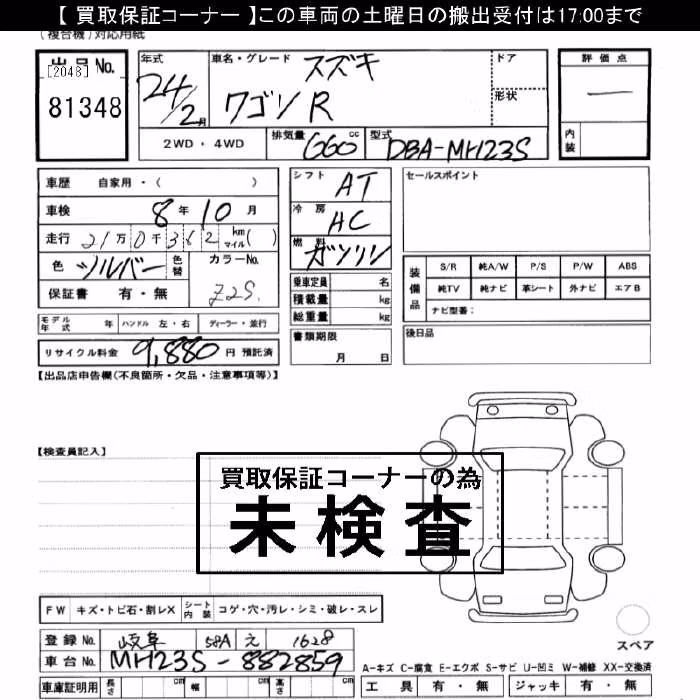 【 買取保証コーナー 】この車両の土曜日の搬出受付は17:00まで
(複合機)対応用紙
出品No.
[2048]
81348
年式
24/2月
車名・グレード
スズキ
ワゴンR
ドア
形状
評価点
―
内装
2WD・4WD
排気量 660 cc
型式 DBA-MH23S
車歴 自家用・( )
車検 8年10月
走行 21万0千362 km マイル( )
色 シルバー 色替
カラーNo. Z2S
保証書 有・無
シフト AT
冷房 AC
燃料 ガソリン
乗車定員 名
積載量 kg
総重量 kg
セールスポイント
装備品
S/R 純A/W P/S P/W ABS
純TV 純ナビ 革シート 外ナビ エアB
ナビ型番:
モデル年式 年 ハンドル 左・右 ディーラー・並行
書類期限
月 日
後日品
リサイクル料金 9,880 円 預託済
【出品店申告欄(不良箇所・欠品・注意事項等)】
【検査員記入】
買取保証コーナーの為
未検査
FW キズ・トビ石・割レX シート内装 コゲ・穴・汚レ・シミ・破レ・スレ
スペア
登録No. 岐阜 58A え 1628
車台No. MH23S-882859
A-キズ C-腐食 E-エクボ S-サビ U-凹ミ W-補修 XX-交換済
車庫証明用 長さ cm 幅 cm 高さ cm
工具 有・無 ジャッキ 有・無